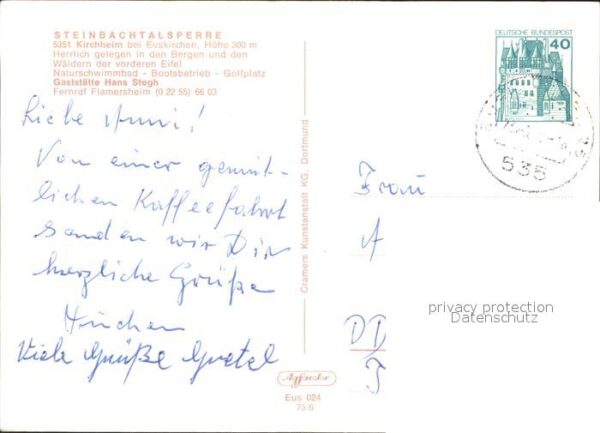 STEINBACHTALSPERRE
5351 Kirchheim bei Euskirchen, Höhe 300 m
Herrlich gelegen in den Bergen und den
Wäldern der vorderen Eifel
Naturschwimmbad - Bootsbetrieb - Golfplatz
Gaststätte Hans Stegh
Fernruf Flamersheim (0 22 55) 66 03
DEUTSCHE BUNDESPOST
40
535
Liebe Anni!
Von einer gemüt-
lichen Kaffeefahrt
senden wir Dir
herzliche Grüße
Viele Grüße Gretel
Cramers Kunstanstalt KG, Dortmund
Frau
A
privacy protection
Datenschutz
Eus 024